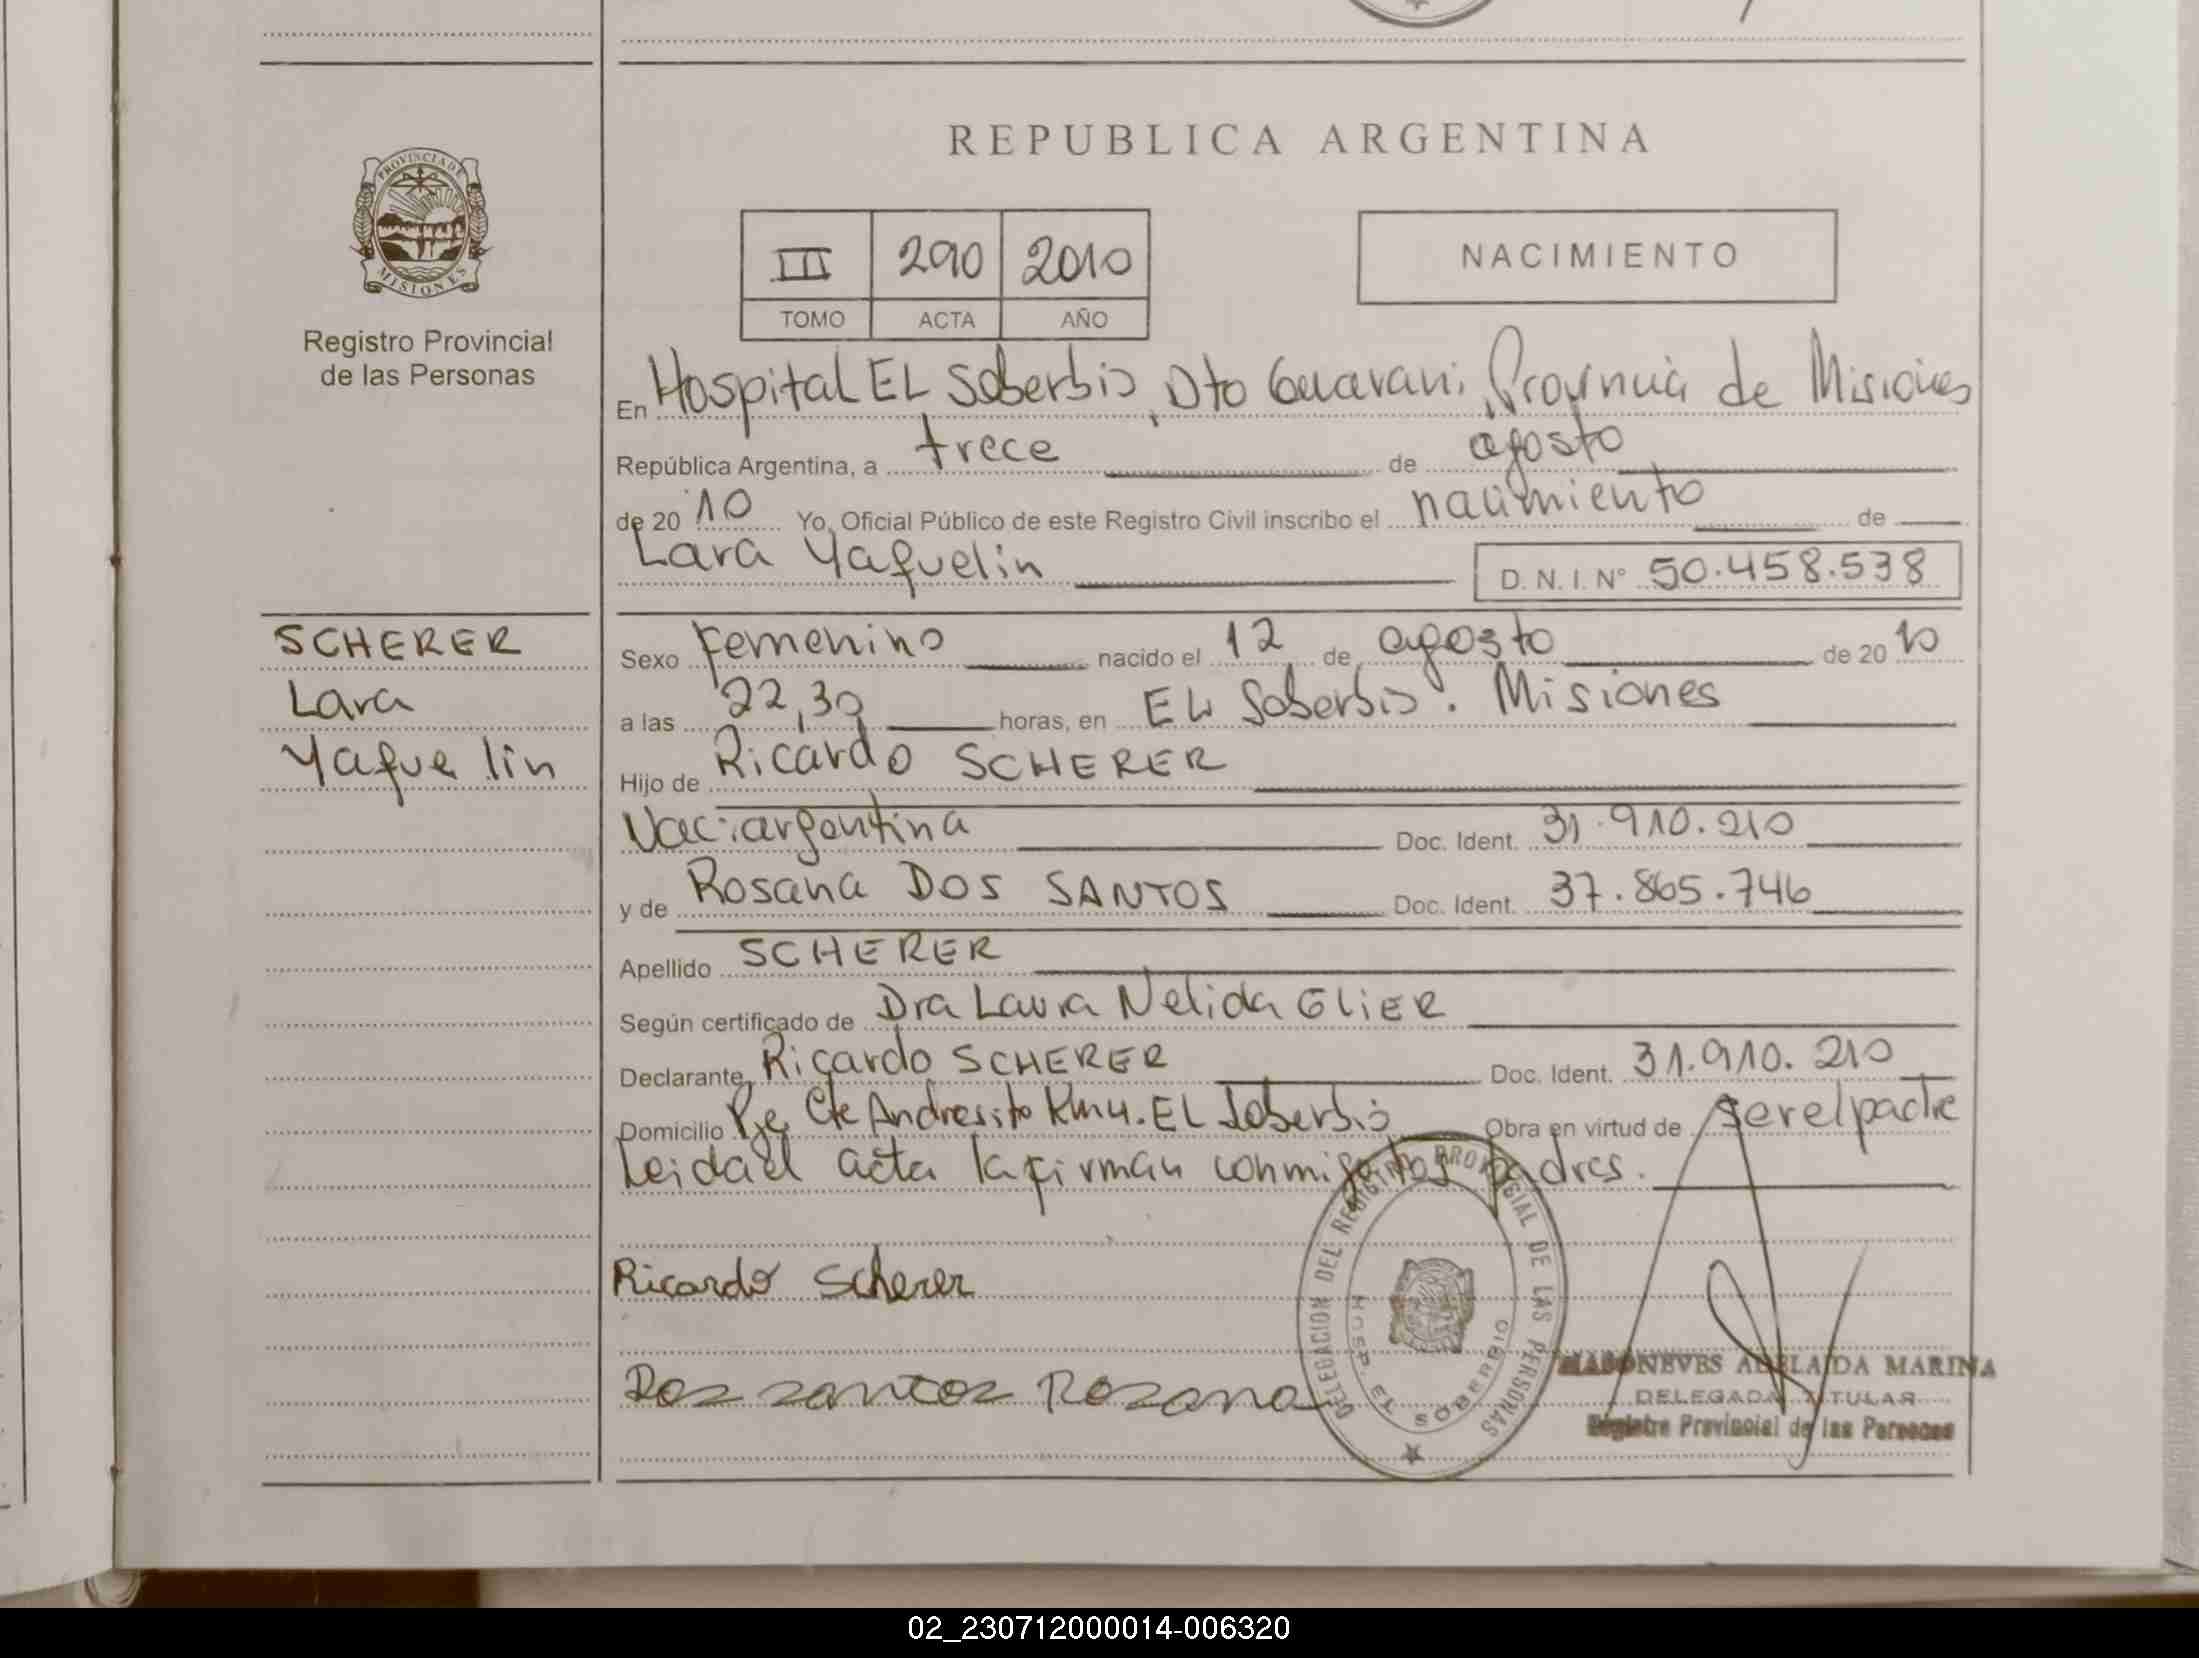 REPUBLICA ARGENTINA
PROVINCIA DE MISIONES
Registro Provincial
de las Personas
III 290 2010
TOMO ACTA AÑO
NACIMIENTO
En Hospital EL Soberbio, Dto Guarani, Provincia de Misiones
República Argentina, a trece de agosto
de 20 10 Yo, Oficial Público de este Registro Civil inscribo el nacimiento de
Lara Yaquelin D. N. I. N° 50.458.538
SCHERER
Lara
Yaquelin
Sexo Femenino nacido el 12 de agosto de 20 10
a las 22,30 horas, en EL Soberbio. Misiones
Hijo de Ricardo SCHERER
Nac: argentina Doc. Ident. 31.910.210
y de Rosana DOS SANTOS Doc. Ident. 37.865.746
Apellido SCHERER
Según certificado de Dra Laura Nelida GLIER
Declarante Ricardo SCHERER Doc. Ident. 31.910.210
Domicilio Pje Cte Andresito Km 4. EL Soberbio Obra en virtud de ser el padre
Leida el acta la firman conmigo los padres.
Ricardo Scherer
Dos santos Rosana
DELEGACION DEL REGISTRO PROVINCIAL DE LAS PERSONAS
HOSP. EL SOBERBIO
MASONEVES ADELAIDA MARINA
DELEGADA TITULAR
Registro Provincial de las Personas
02_230712000014-006320